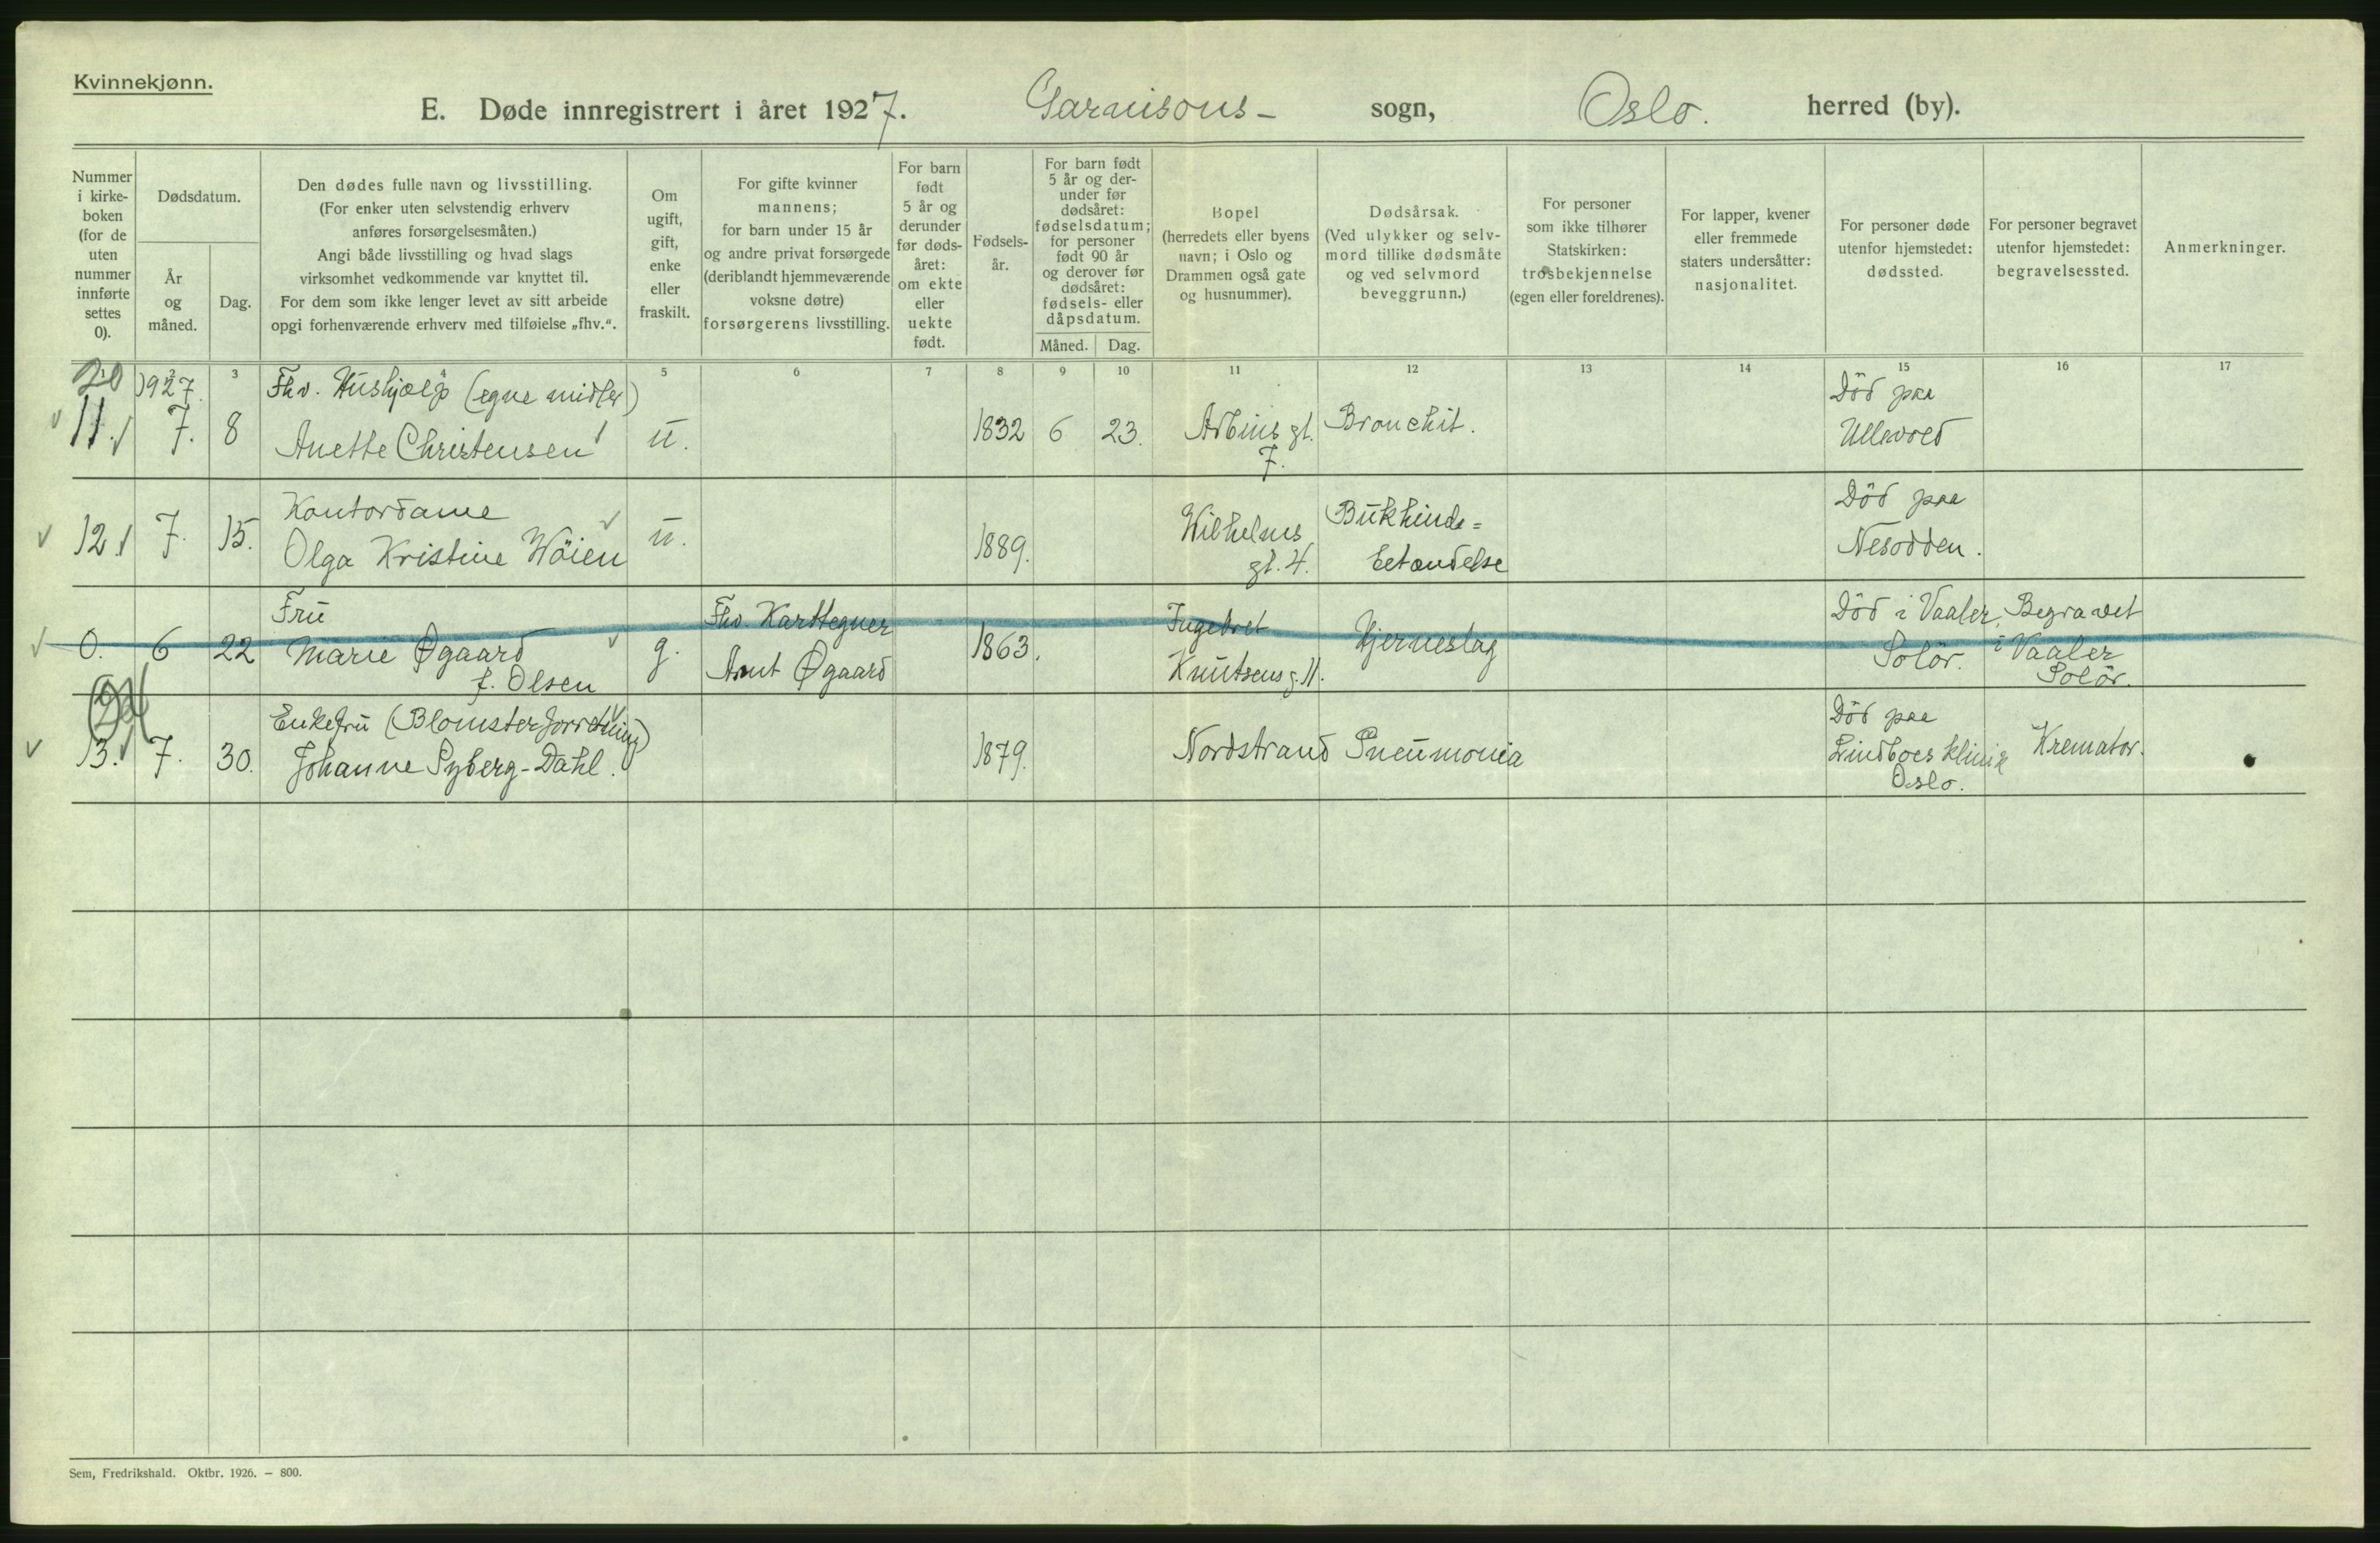 Kvinnekjønn.
E. Døde innregistrert i året 1927. Garnisons- sogn, Oslo. herred (by).
Nummer i kirkeboken (for de uten nummer innførte settes 0).
Dødsdatum.
År og måned.
Dag.
Den dødes fulle navn og livsstilling.
(For enker uten selvstendig erhverv
anføres forsørgelsesmåten.)
Angi både livsstilling og hvad slags
virksomhet vedkommende var knyttet til.
For dem som ikke lenger levet av sitt arbeide
opgi forhenværende erhverv med tilføielse „fhv.“.
Om
ugift,
gift,
enke
eller
fraskilt.
For gifte kvinner
mannens;
for barn under 15 år
og andre privat forsørgede
(deriblandt hjemmeværende
voksne døtre)
forsørgerens livsstilling.
For barn
født
5 år og
derunder
før døds-
året:
om ekte
eller
uekte
født.
Fødsels-
år.
For barn født
5 år og der-
under før
dødsåret:
fødselsdatum;
for personer
født 90 år
og derover før
dødsåret:
fødsels- eller
dåpsdatum.
Måned. Dag.
Bopel
(herredets eller byens
navn; i Oslo og
Drammen også gate
og husnummer).
Dødsårsak.
(Ved ulykker og selv-
mord tillike dødsmåte
og ved selvmord
beveggrunn.)
For personer
som ikke tilhører
Statskirken:
trosbekjennelse
(egen eller foreldrenes).
For lapper, kvener
eller fremmede
staters undersåtter:
nasjonalitet.
For personer døde
utenfor hjemstedet:
dødssted.
For personer begravet
utenfor hjemstedet:
begravelsessted.
Anmerkninger.
1 2 3 4 5 6 7 8 9 10 11 12 13 14 15 16 17
20 1927. Fhv. Hushjælp (egne midler) Död paa
11. 7. 8 Anette Christensen u. 1832 6 23. Arbins gt. Bronchit. Ullevold
7.
Kontordame Död paa
12. 7. 15. Olga Kristine Wöien u. 1889. Wilhelms Bukhinde=
gt. 4. betændelse Nesodden.
Fru Fhv. Karttegner Ingebret Död i Vaaler, Begravet
0. 6 22 Marie Øgaard g. Arnt Øgaard 1863. Knutsens g. 11. Hjerneslag Solör. i Vaaler
f. Olsen Solör.
Enkefru (Blomsterforretning) Död paa
13. 7. 30. Johanne Syberg-Dahl. 1879. Nordstrand Pneumonia Lindboes klinik Kremator.
Oslo.
Sem, Fredrikshald. Oktbr. 1926. – 800.